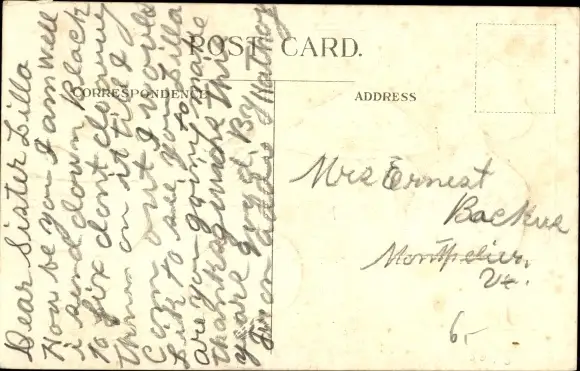 POST CARD.
CORRESPONDENCE
ADDRESS
Dear Sister Lilla
How be you I am well
i send down Black
to fix dont clowny
them on it tire I
Com out I would
Lik to see you Lilla
are you going to have
thanksgiveing this
year good By
from addie Mathoy
Mrs Ernest
Backus
Montpelier,
Vt.
6.-